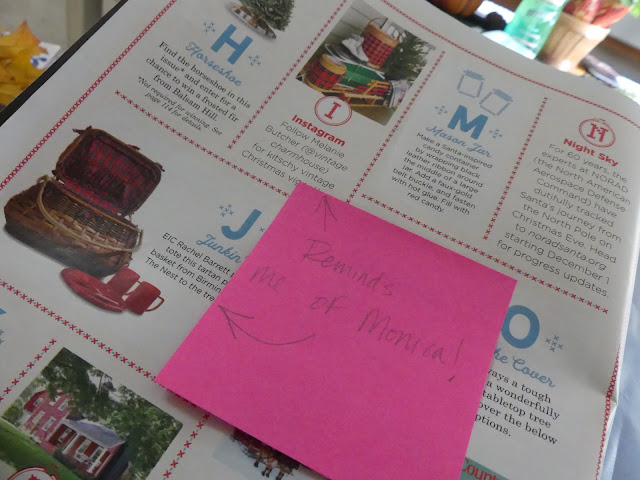 H
Horseshoe
Find the horseshoe in this
issue* and enter for a
chance to win a frosted fir
from Balsam Hill.
*Not required for winning. See
page 114 for details.
I
Instagram
Follow Melanie
Butcher (@vintage
charmhouse)
for kitschy vintage
Christmas
M
Mason Jar
Make a Santa-inspired
candy container
by wrapping black
leather ribbon around
the middle of a large
jar. Add a faux-gold
belt buckle, and fasten
with hot glue. Fill with
red candy.
N
Night Sky
For 60 years, the
experts at NORAD
(the North American
Aerospace Defense
Command) have
dutifully tracked
Santa's journey from
the North Pole on
Christmas Eve. Head
to noradsanta.org
starting December 1
for progress updates.
J
Junkin
EIC Rachel Barrett
tote this tartan
basket from
The Nest to the
Reminds
me of Monica!
O
the Cover
a tough
wonderfully
tabletop tree
over the below